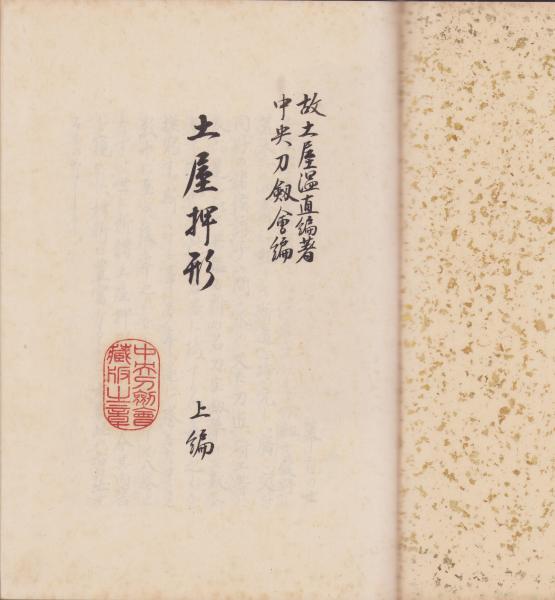 故土屋温直編著
中央刀剱會編
土屋押形
上編
中央刀剱會
藏版之章